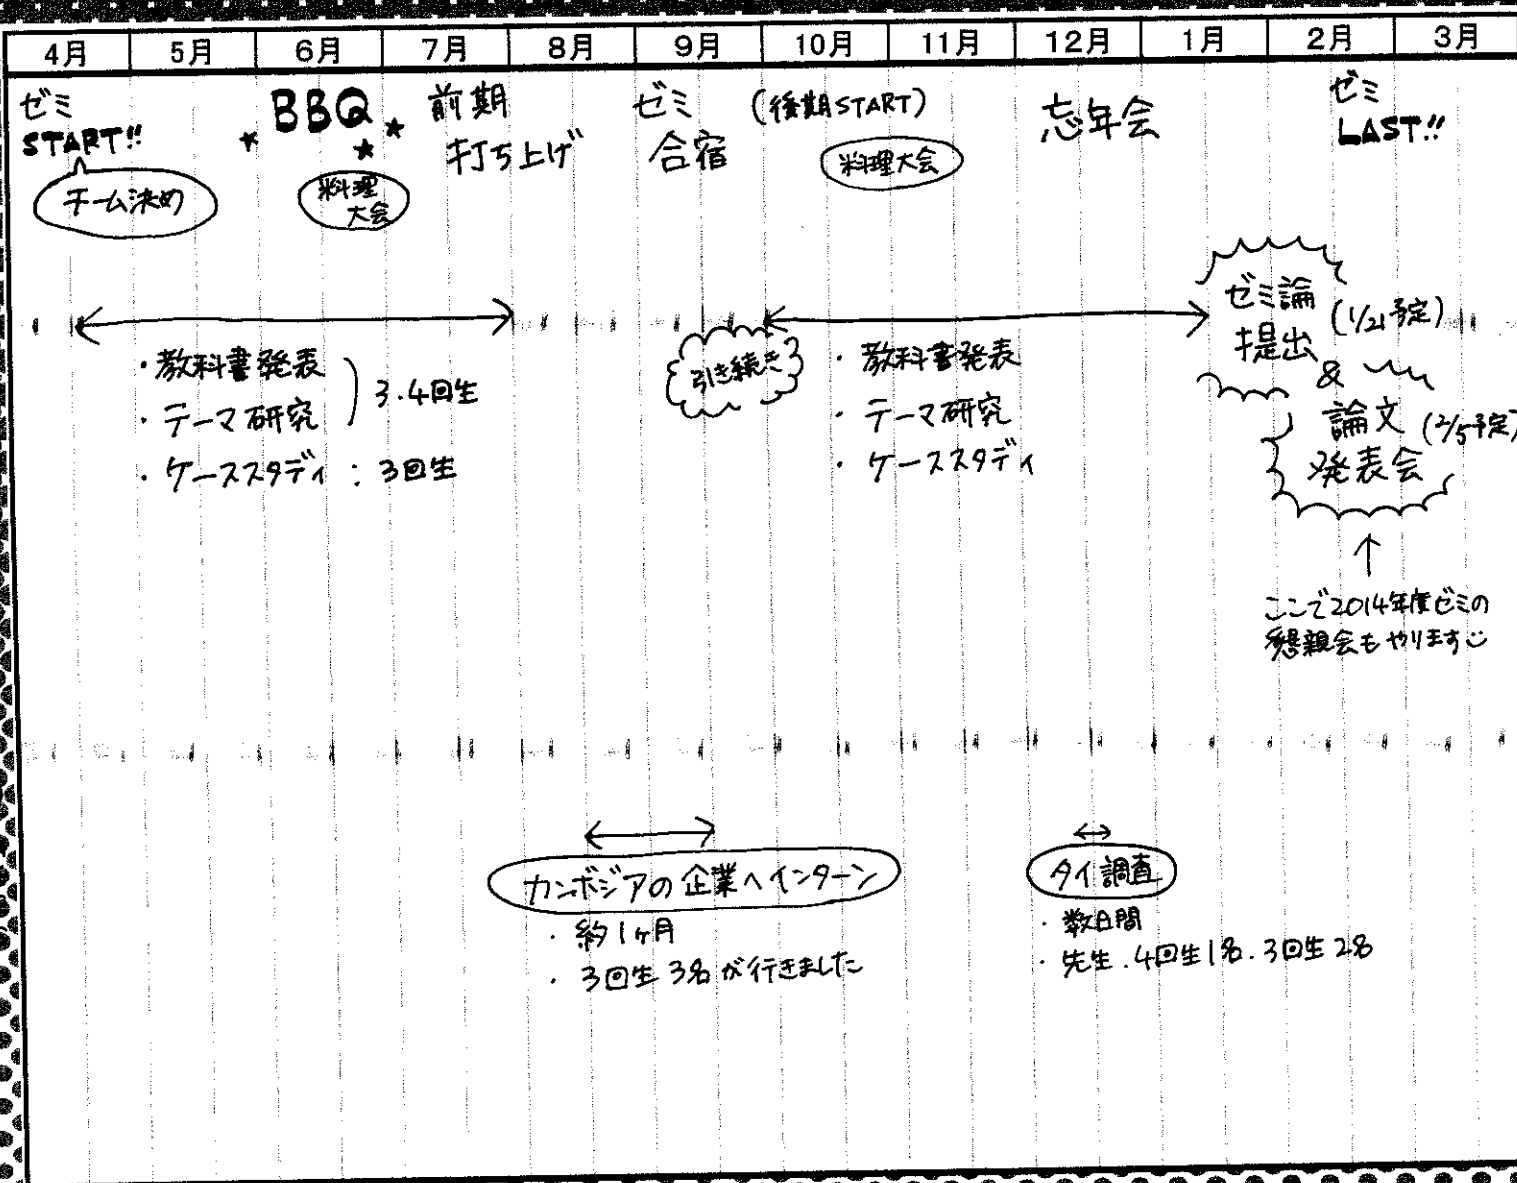 4月 5月 6月 7月 8月 9月 10月 11月 12月 1月 2月 3月
ゼミ
START!!
チーム決め
BBQ
料理
大会
前期
打ち上げ
ゼミ
合宿
(後期START)
料理大会
忘年会
ゼミ
LAST!!
・教科書発表
・テーマ研究
3.4回生
・ケーススタディ：3回生
引き続き
・教科書発表
・テーマ研究
・ケーススタディ
ゼミ論
提出
(1/21予定)
&
論文
発表会
(2/5予定)
↑
ここで2014年度ゼミの
懇親会もやります
カンボジアの企業へインターン
・約1ヶ月
・3回生3名が行きました
タイ調査
・数日間
・先生.4回生1名.3回生2名